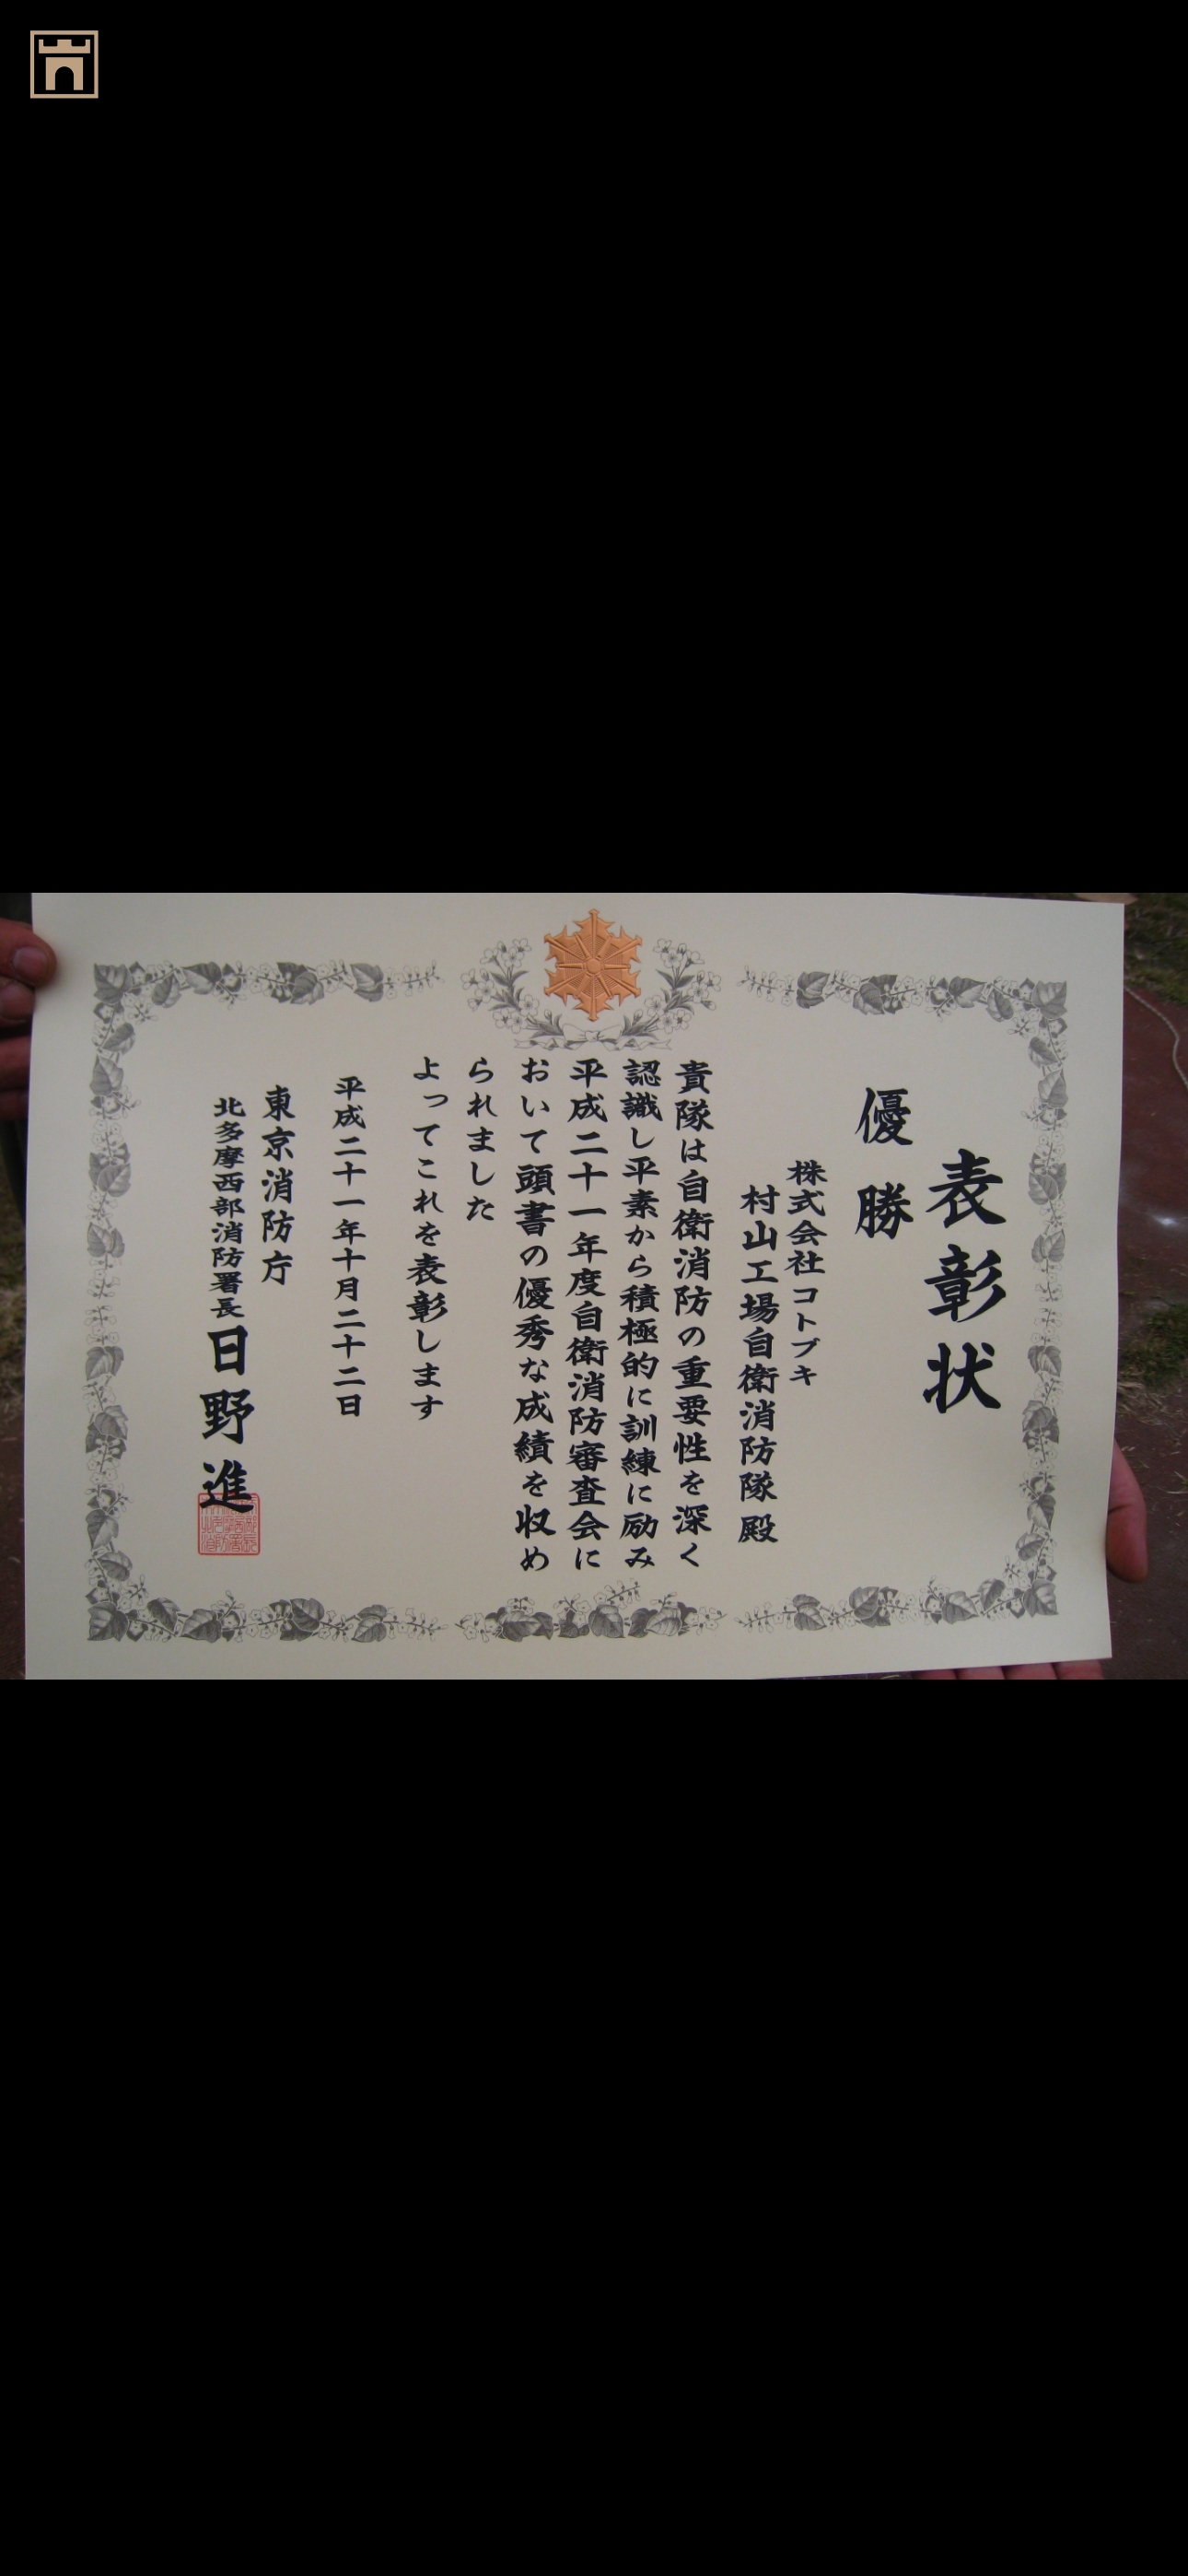 表彰状
優勝
株式会社コトブキ
村山工場自衛消防隊殿
貴隊は自衛消防の重要性を深く
認識し平素から積極的に訓練に励み
平成二十一年度自衛消防審査会に
おいて頭書の優秀な成績を収め
られました
よってこれを表彰します
平成二十一年十月二十二日
東京消防庁
北多摩西部消防署長日野進